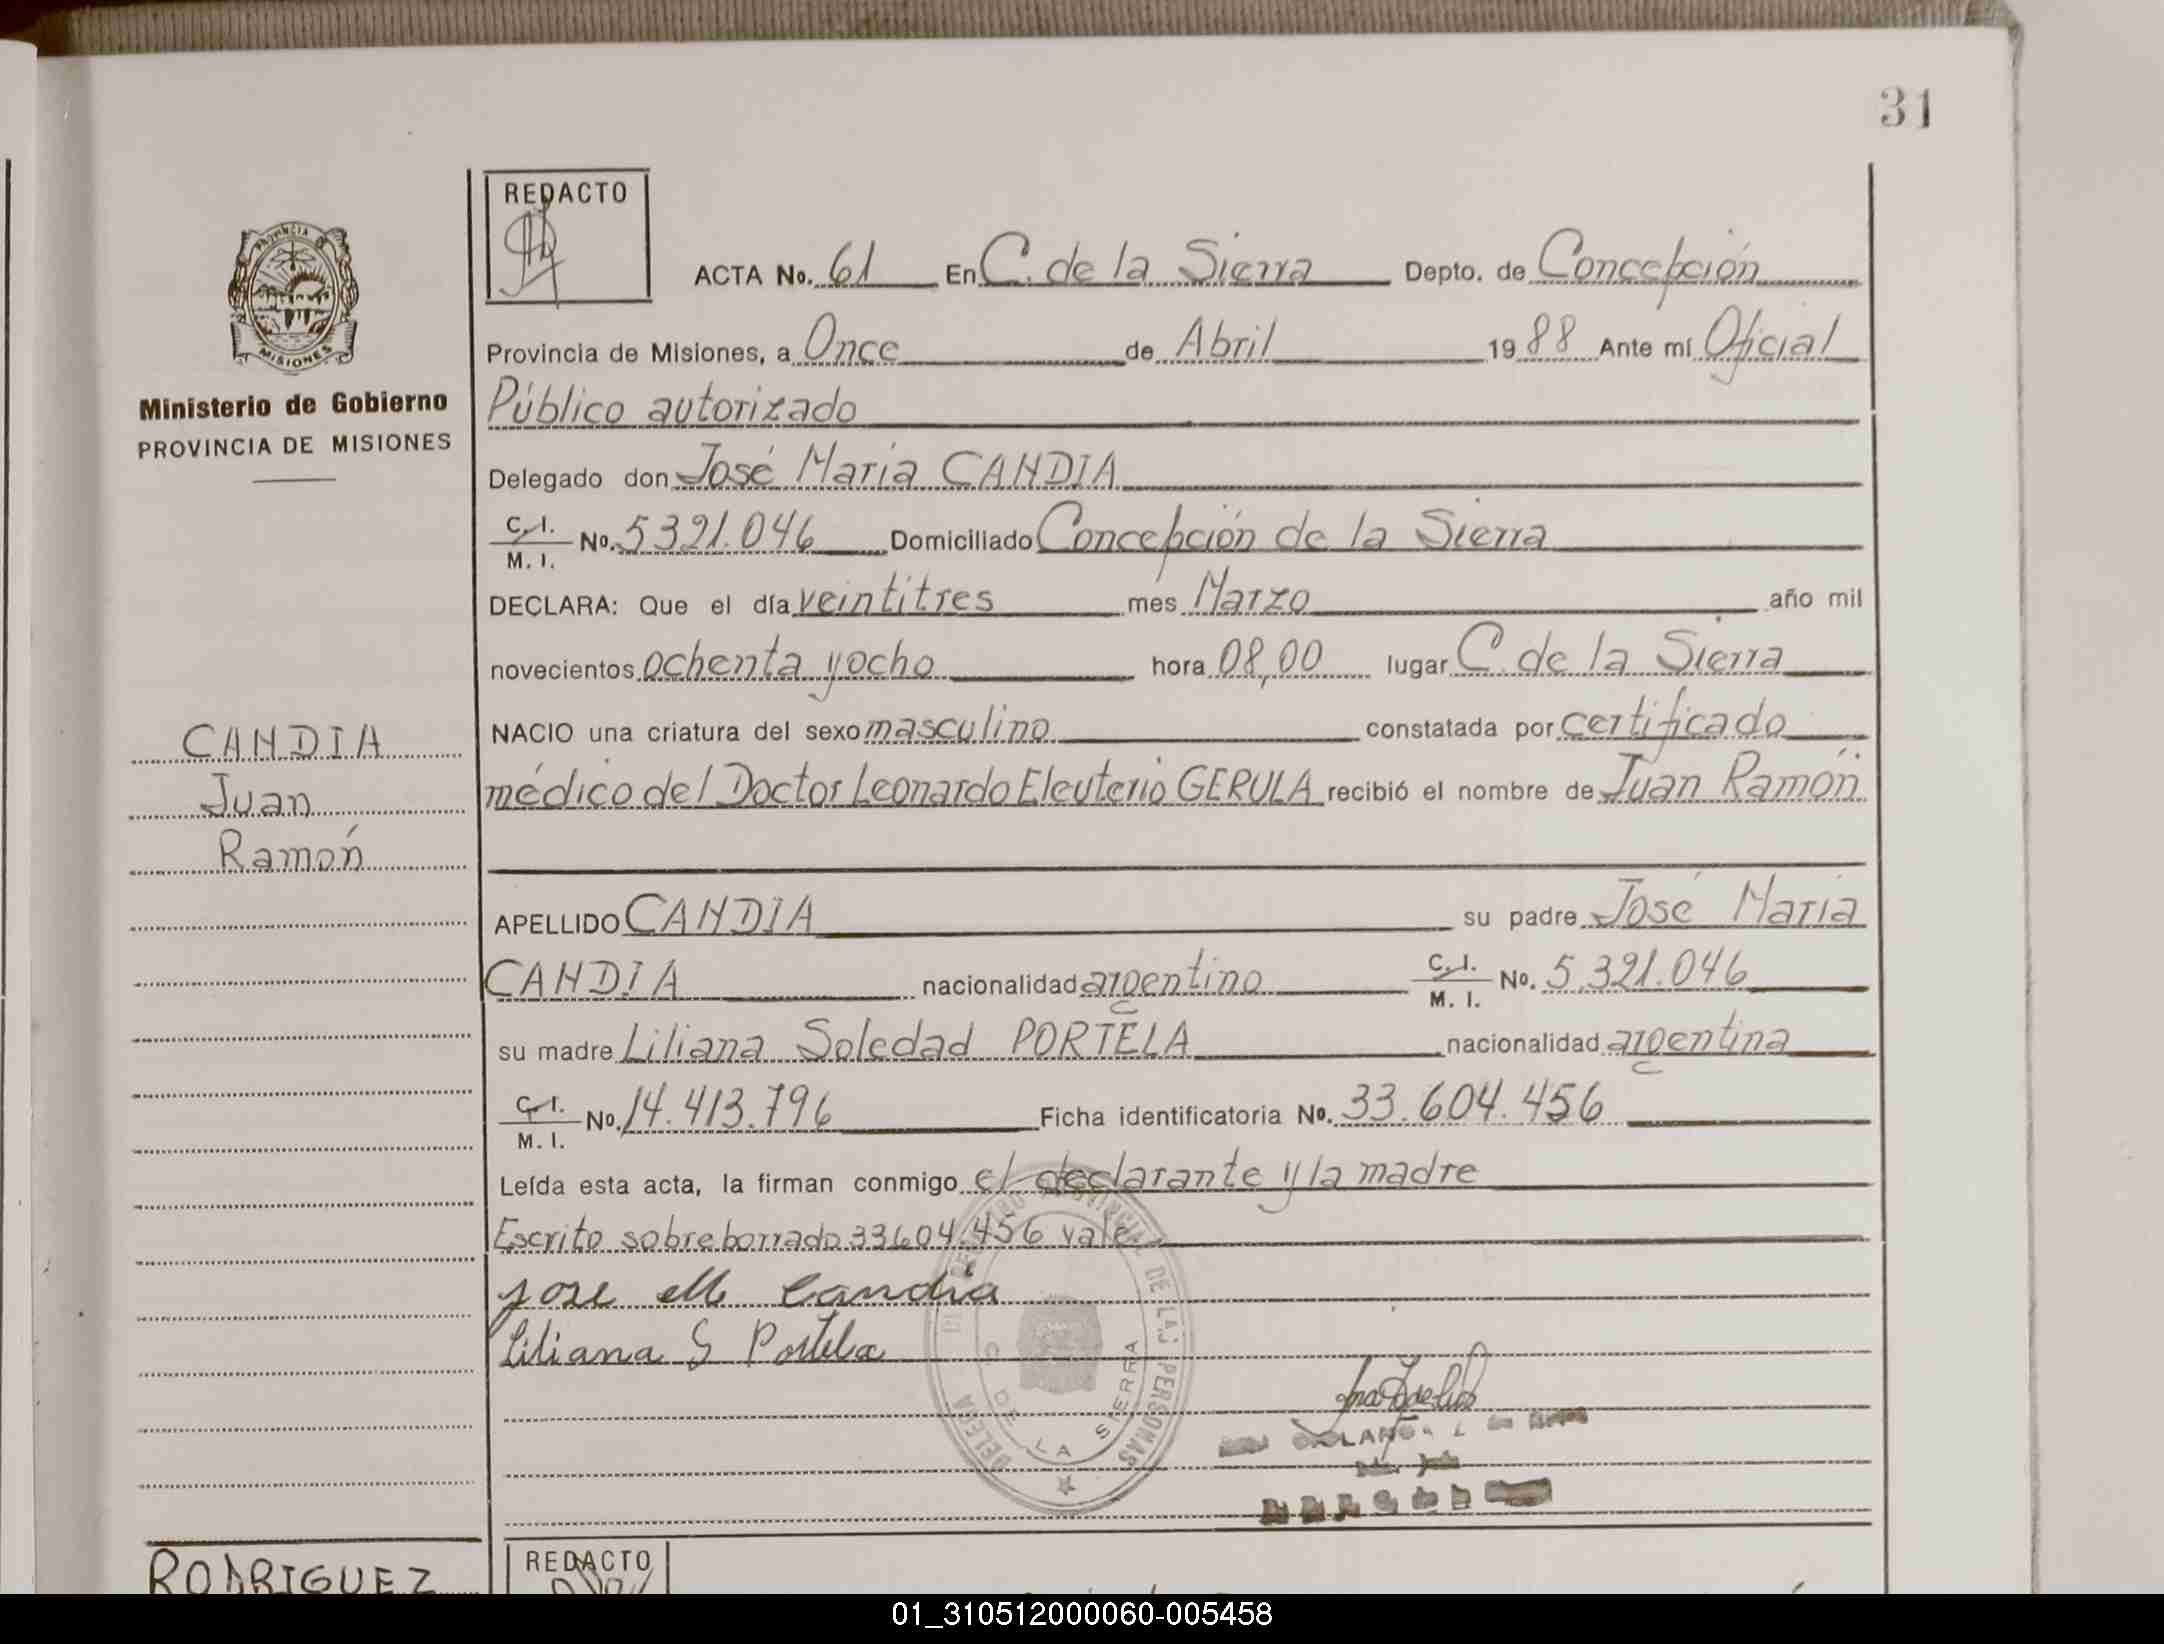 31
REDACTO
PROVINCIA DE
MISIONES
ACTA No. 61 En C. de la Sierra Depto. de Concepción
Provincia de Misiones, a Once de Abril 1988 Ante mí Oficial
Ministerio de Gobierno
PROVINCIA DE MISIONES
Público autorizado
Delegado don José María CANDIA
C. I.
M. I. No. 5321.046 Domiciliado Concepción de la Sierra
DECLARA: Que el día veintitres mes Marzo año mil
novecientos ochenta y ocho hora 08,00 lugar C. de la Sierra
CANDIA
Juan
Ramón
NACIO una criatura del sexo masculino constatada por certificado
médico del Doctor Leonardo Eleuterio GERULA recibió el nombre de Juan Ramón
APELLIDO CANDIA su padre José María
CANDIA nacionalidad argentino C. I. M. I. No. 5.321.046
su madre Liliana Soledad PORTELA nacionalidad argentina
C. I.
M. I. No. 14.413.796 Ficha identificatoria No. 33.604.456
Leída esta acta, la firman conmigo el declarante y la madre
Escrito sobre borrado 33604.456 vale
Jose M Candia
Liliana S Portela
DE LAS PERSONAS
C. DE LA SIERRA
RODRIGUEZ
REDACTO
01_310512000060-005458